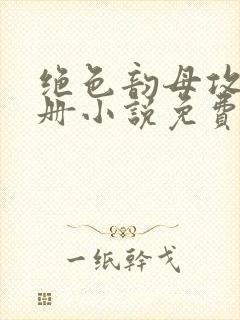 绝色韵母攻
册小说免费
一纸幹戈